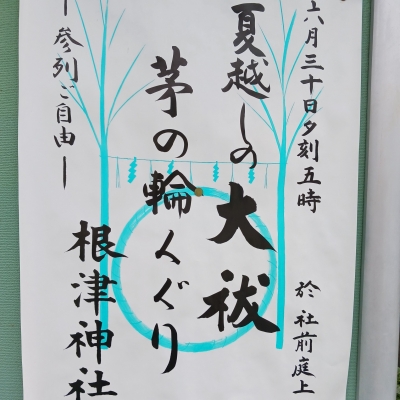 六月三十日夕刻五時
於 社前庭上
夏越しの大祓
茅の輪くぐり
―参列ご自由―
根津神社